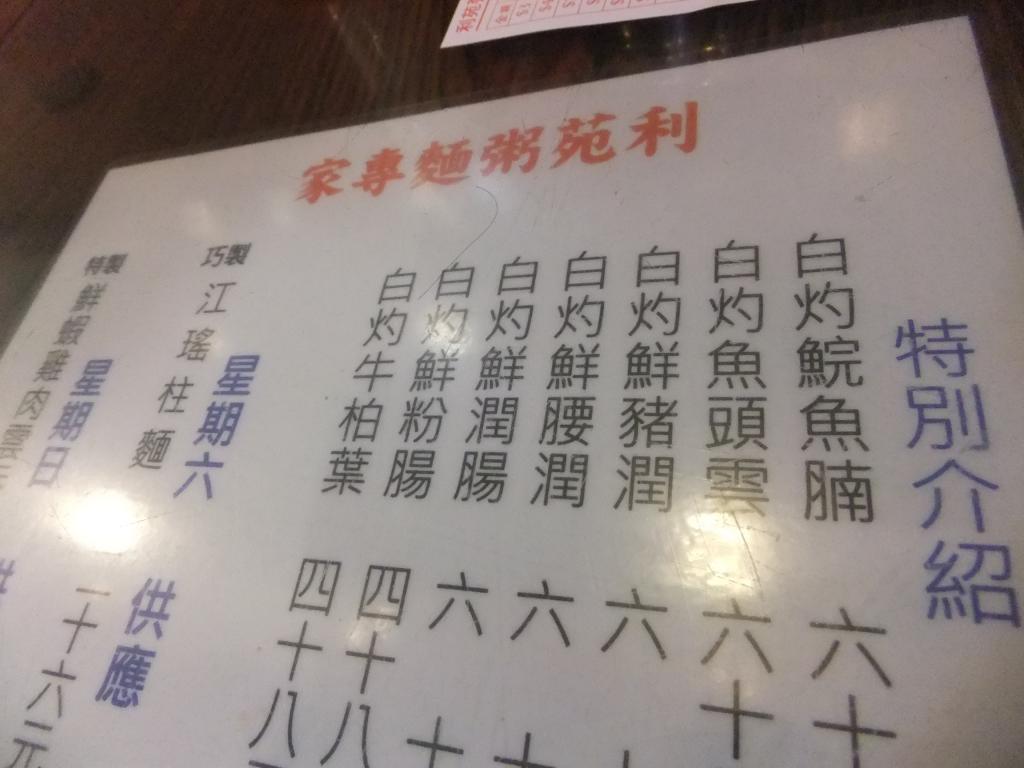 利苑粥麵專家
特別介紹
白灼鯇魚腩 六十
白灼魚頭雲 六十
白灼鮮豬潤 六
白灼鮮腰潤 六十
白灼鮮潤腸 六十
白灼鮮粉腸 四十八
白灼牛柏葉 四十八
星期六供應
巧製江瑤柱麵
星期日供
特製鮮蝦雞肉雲
二十六元